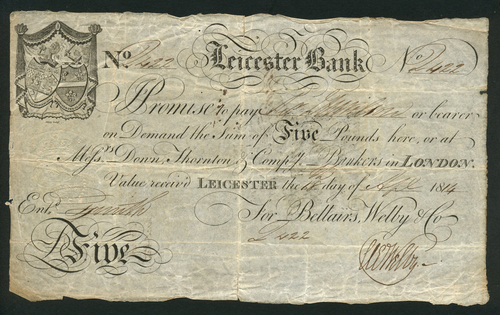 No. 2422 Leicester Bank No. 2422
I Promise to pay or bearer
on Demand the Sum of Five Pounds here, or at
Mess.rs Down, Thornton & Comp.y Bankers in LONDON.
Value receiv'd LEICESTER the day of 1814
Ent.d Smith For Bellairs, Welby & Co
2422
Five